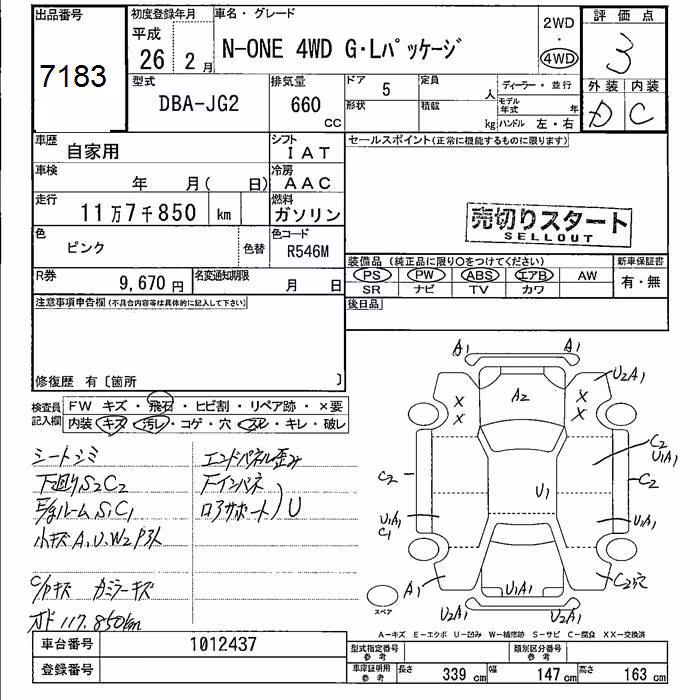 出品番号
7183
初度登録年月
平成
26 2月
車名・グレード
N-ONE 4WD G・Lパッケージ
2WD
・
4WD
評価点
3
外装 内装
D C
型式
DBA-JG2
排気量
660
CC
ドア
5
定員
人
形状
積載
kg
ディーラー・並行
モデル年式 年
ハンドル 左・右
車歴
自家用
シフト
IAT
車検
年 月( 日)
冷房
AAC
走行
11万7千850 km
燃料
ガソリン
色
ピンク
色替
色コード
R546M
R券
9,670円
名変通知期限
月 日
セールスポイント(正常に機能するものに限ります)
売切りスタート
SELLOUT
装備品 (純正品に限り○をつけてください)
PS PW ABS エアB AW
SR ナビ TV カワ
新車保証書
有・無
後日品
注意事項申告欄(不具合内容等は具体的に記入して下さい)
修復歴 有〔箇所 〕
検査員記入欄
FW キズ・飛石・ヒビ割・リペア跡・×要
内装 キズ・汚レ・コゲ・穴・スレ・キレ・破レ
シートシミ
下廻りS2C2
E/gルームS1C1
小キズA.U.W2P多数
エンドパネル歪み
Fインパネ
ロアサポート)U
C/Pキズ カミラーキズ
オド117.850km
A1 A1
U2A1
A2
X X
X X
C2
U1A1
C2
C2
U1
U1A1
C1
U1A1
A1
U1A1
C2穴
U2A1 U2A1
スペア
A-キズ E-エクボ U-凹み W-補修跡 S-サビ C-腐食 XX-交換済
車台番号
1012437
登録番号
型式指定番号
参考
類別区分番号
参考
車庫証明用
参考
長さ 339 cm 幅 147 cm 高さ 163 cm